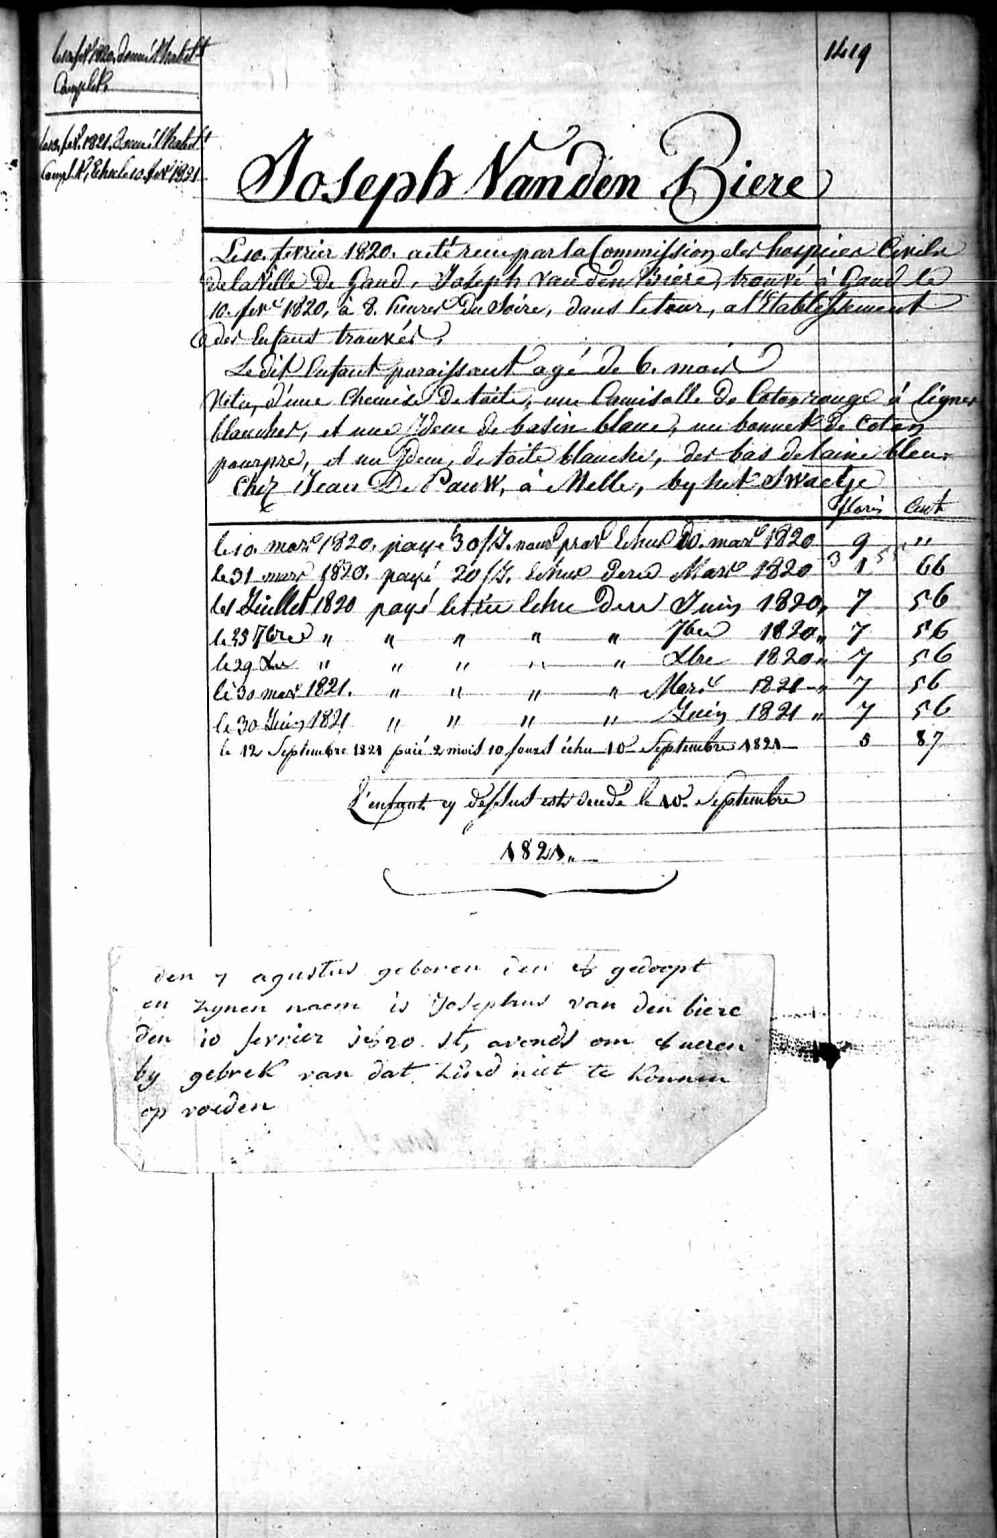 1419
le 10 fev 1820, donné l'habit
Complet.
le 10. fevr. 1821. donné l'habit
Compl. Echu le 10. fevr 1821
Joseph Vanden Biere
Le 10. fevrier 1820. a été recu par la Commission des hospices Civils
de la Ville De Gand, Joseph Vanden Biere, trouvé à Gand le
10. fevr 1820, à 8. heures Du Soire, dans le tour, a l'Etablissement
des Enfans trouvés,
Le dit Enfant paraissant agé de 6. mois
Vetu, d'une Chemise De toile, une Camisolle De Coton rouge à lignes
blanches, et une Idem de basin blanc, un bonnet De Coton
pourpre, et un Idem, de toile blanche, des bas de laine bleu
Chez Jean De Pauw, à Melle, by het Swaetje
florins Cent
le 10. mars 1820. payé 30 Echus 10. mars 1820 9 "
le 31 mars 1820. payé 20 Echus Mars 1820 3 1 55 66
le 1 Juillet 1820 payé Echu Juin 1820, 7 56
le 23 7bre " " " " " 7bre 1820 " 7 56
le 29 Xbre " " " " " Xbre 1820 " 7 56
le 30 mars 1821. " " " " Mars 1821 " 7 56
le 30 Juin 1821 " " " " Juin 1821 " 7 56
le 12 Septembre 1821 paié 2 mois 10 jours échu 10 Septembre 1821 5 87
L'enfant cy dessus est décédé le 10 Septembre
1821.
den 7 agustus geboren den 8 gedoopt
en zynen naem is Josephus van den biere
den 10 fevrier 1820 st, avonds om 8 ueren
by gebrek van dat kind niet te konnen
op voeden